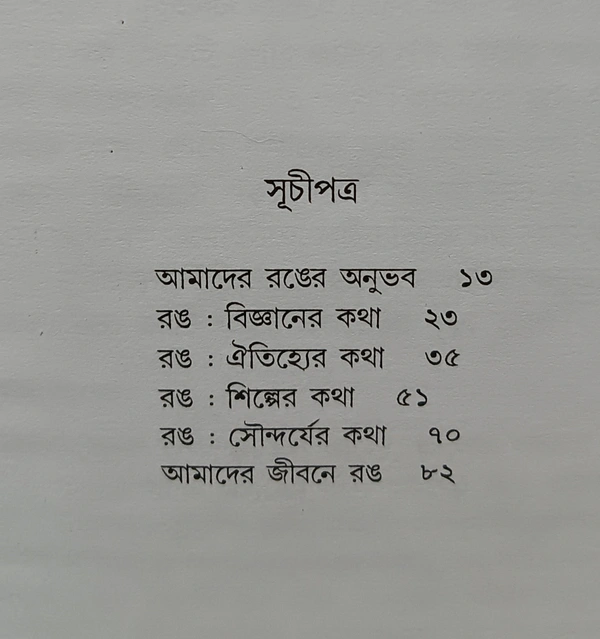 সূচীপত্র
আমাদের রঙের অনুভব ১৩
রঙ : বিজ্ঞানের কথা ২৩
রঙ : ঐতিহ্যের কথা ৩৫
রঙ : শিল্পের কথা ৫১
রঙ : সৌন্দর্যের কথা ৭০
আমাদের জীবনে রঙ ৮২